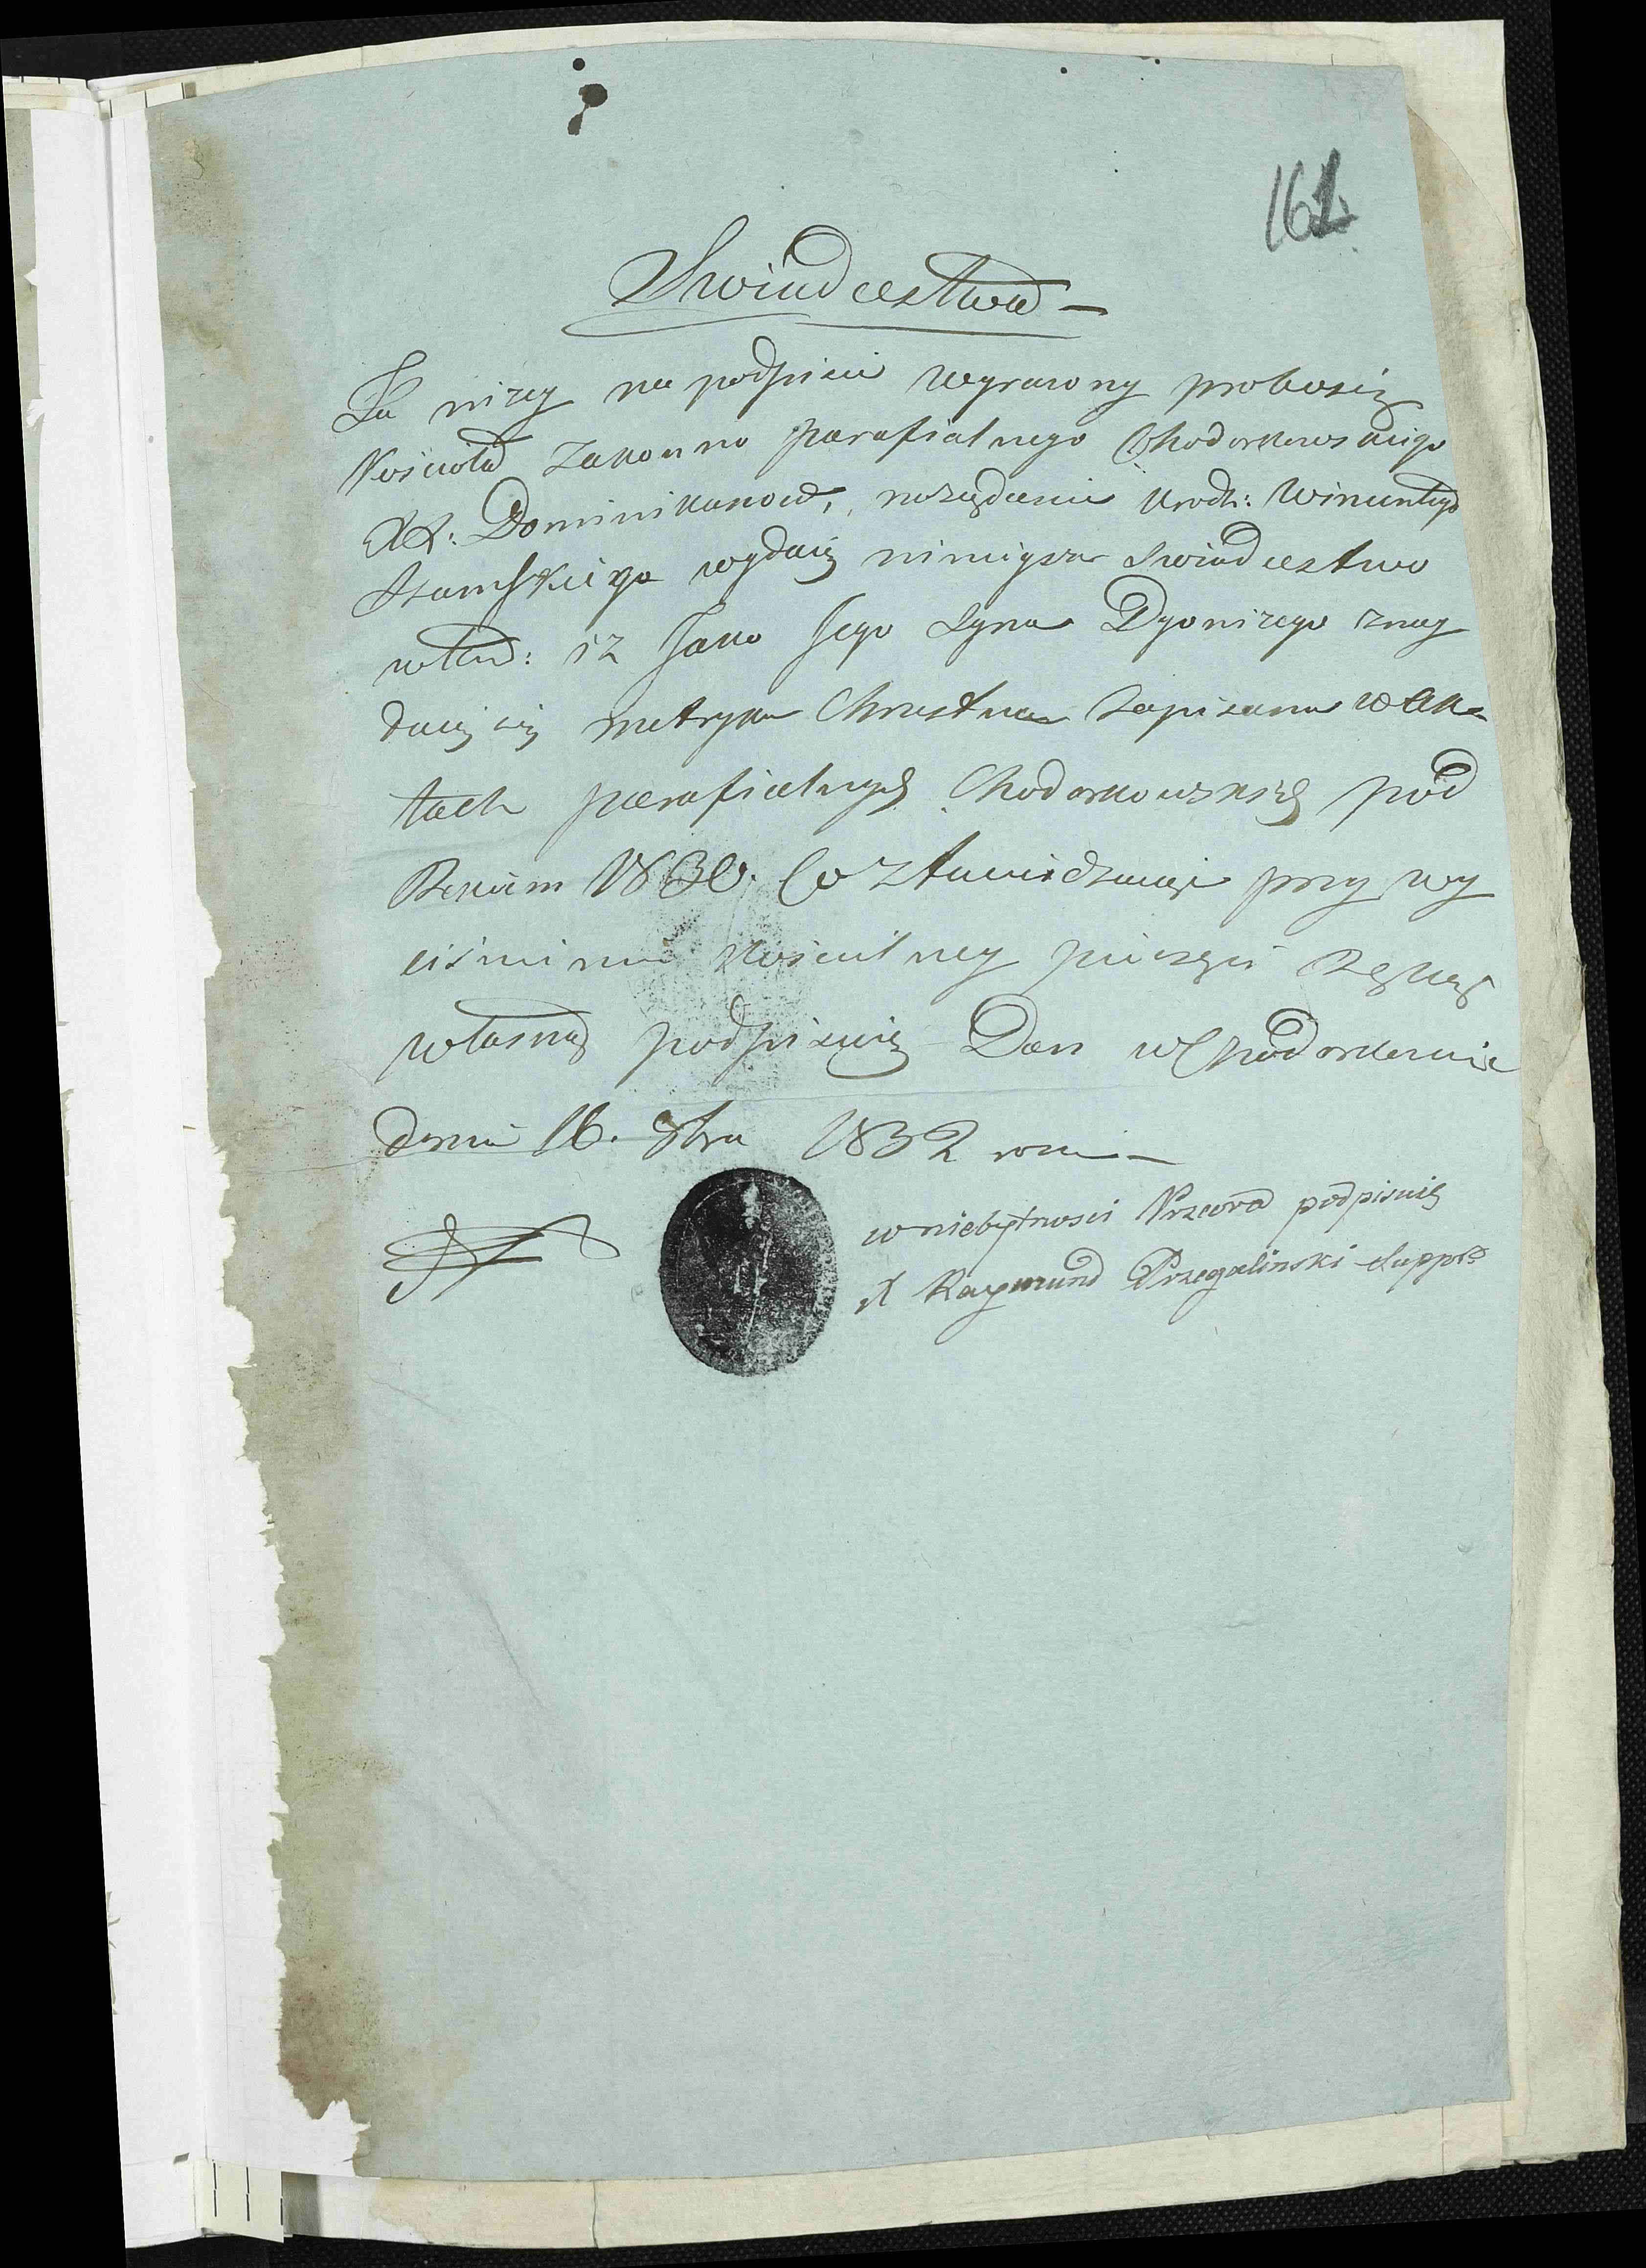 161
Swiadectwo –
Ja nizey na podpisie wyrażony proboszcz
Kościoła Zakonno parafialnego Chodorkowskiego
XX: Dominikanow, na żądanie Urodz: Wincentego
wydaię ninieysze Swiadectwo
iz Jako Jego Syna Dyonizego znay
duię się metryka Chrestna Zapisana w Ak=
tach parafialnych Chodorkowskich pod
Rokiem 1830. Co ztwierdzając przy wy
ciśnieniu Kościelney pieczęci Ręką
własną podpisuię Dan w Chodorkowie
dnia 16. 8bra 1832 roku –
w niebytnosci Przeora podpisuię
X Raymund Przegalinski Suppor